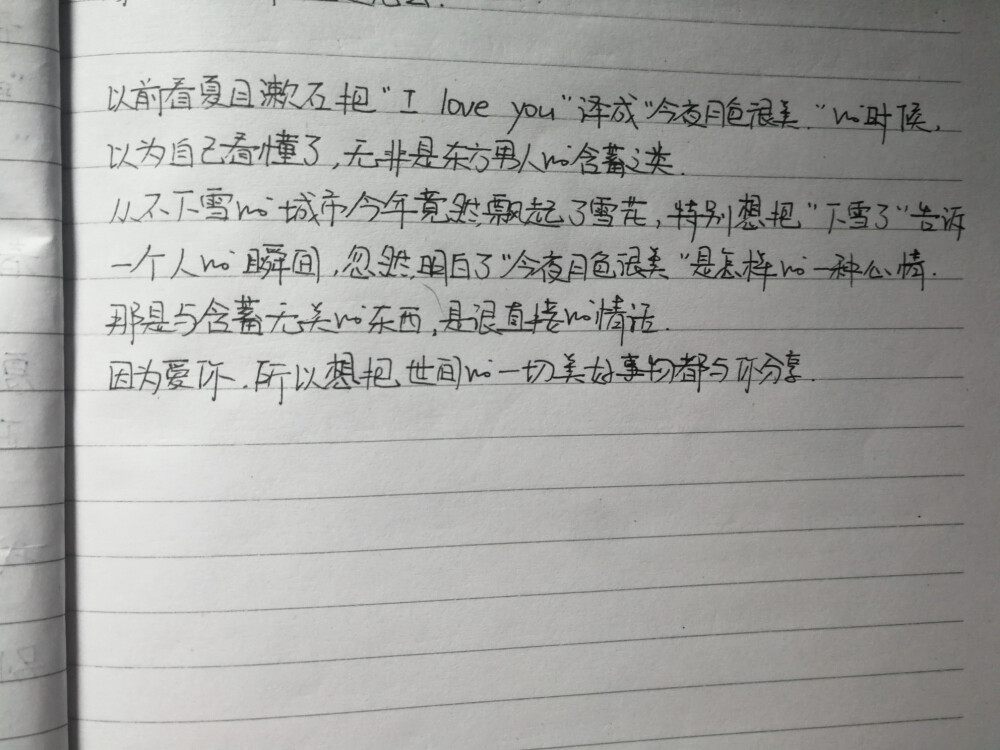 以前看夏目漱石把"I love you"译成"今夜月色很美."的时候,
以为自己看懂了,无非是东方男人的含蓄之类.
从不下雪的城市今年竟然飘起了雪花,特别想把"下雪了"告诉
一个人的瞬间,忽然明白了"今夜月色很美"是怎样的一种心情.
那是与含蓄无关的东西,是很直接的情话.
因为爱你.所以想把世间的一切美好事物都与你分享.